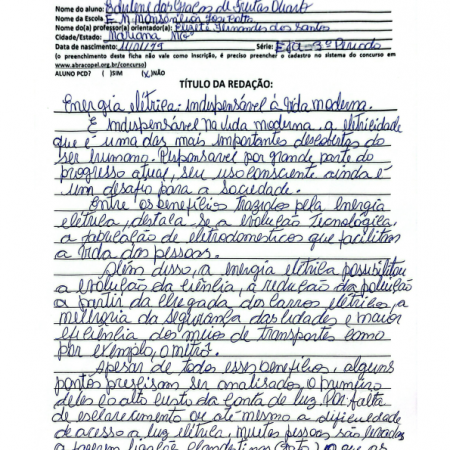 Nome do aluno: Edylene das Graças de Freitas Duarte
Nome da Escola: E. M. Monsenhor
Nome do(a) professor(a) orientador(a): dos Santos
Cidade/Estado: Mariana MG
Data de nascimento: Série: EJA - 3º Período
(o preenchimento deste ficha não vale como inscrição, é preciso preencher o cadastro no sistema do concurso em
www.abracopel.org.br/concurso)
ALUNO PCD? ( )SIM (X)NÃO
TÍTULO DA REDAÇÃO:
Energia elétrica: indispensável à vida moderna.
É indispensável na vida moderna a eletricidade
que é uma das mais importantes descobertas do
ser humano. Responsável por grande parte do
progresso atual, seu uso consciente ainda é
um desafio para a sociedade.
Entre os benefícios trazidos pela energia
elétrica, destaca-se a evolução tecnológica,
a fabricação de eletrodomésticos que facilitam
a vida das pessoas.
Além disso, a energia elétrica possibilitou
a evolução da ciência, a redução da poluição
a partir da chegada dos carros elétricos, a
melhoria da segurança das cidades e maior
eficiência dos meios de transportes como
por exemplo, o metrô.
Apesar de todos esses benefícios, alguns
pontos precisam ser analisados, o primeiro
deles é o alto custo da conta de luz. Por falta
de esclarecimento ou até mesmo a dificuldade
de acesso a luz elétrica, muitas pessoas são levadas
a fazerem ligação clandestinas (gato) o que as